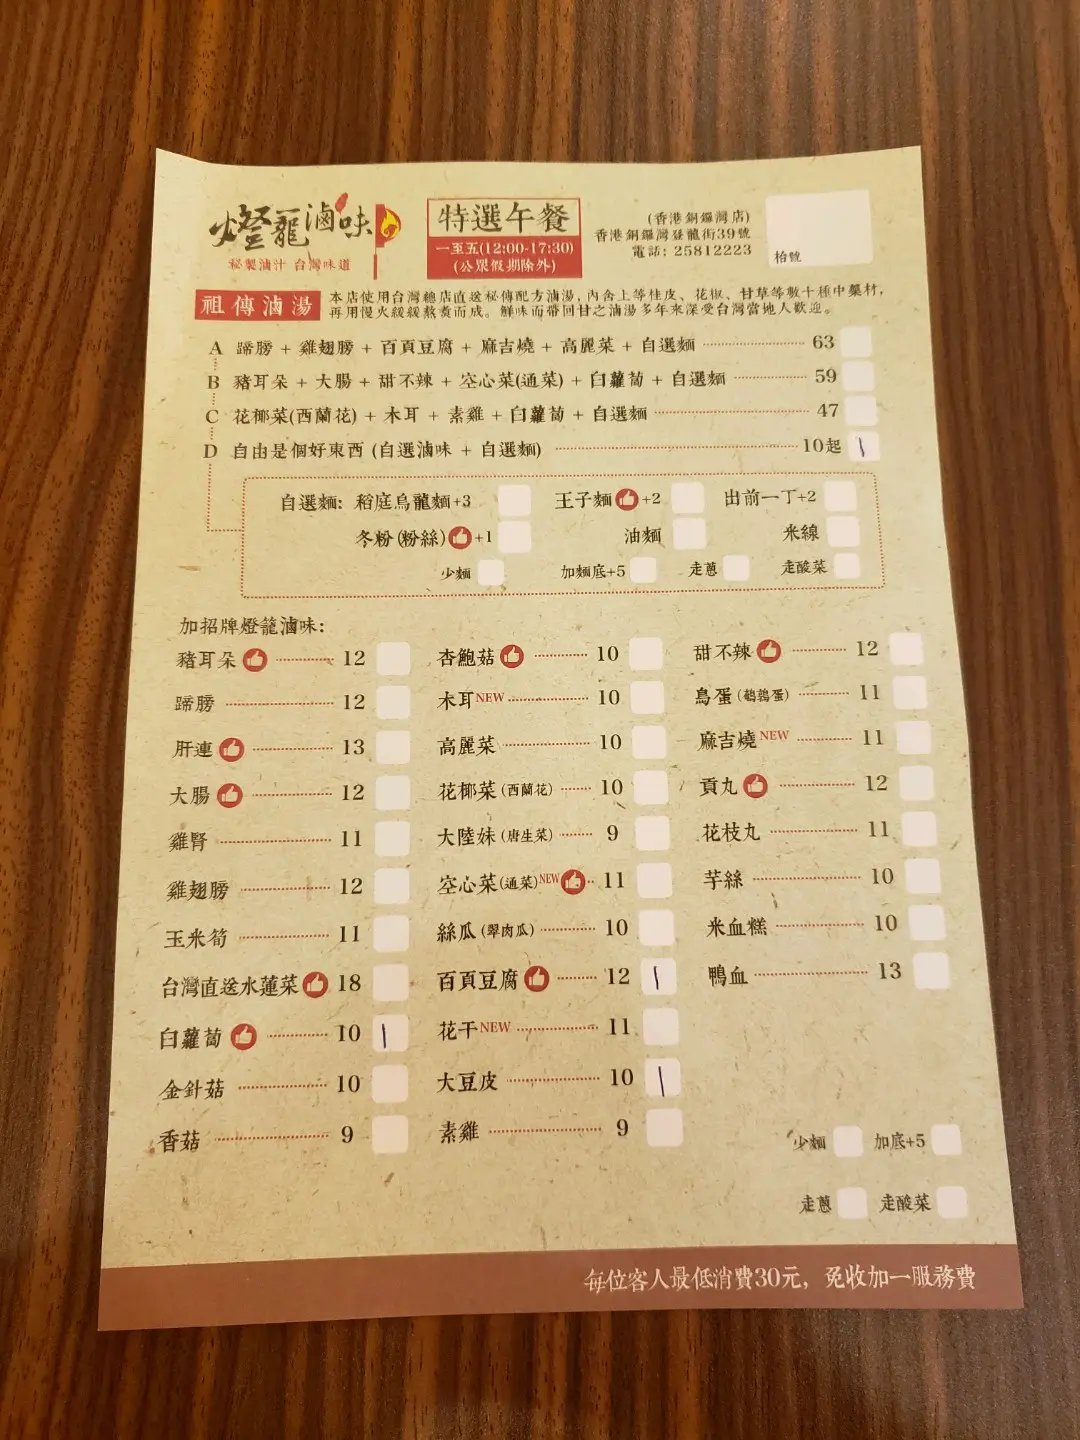 燈籠滷味
秘製滷汁 台灣味道
特選午餐
一至五(12:00-17:30)
(公眾假期除外)
(香港銅鑼灣店)
香港銅鑼灣登龍街39號
電話: 25812223
枱號
祖傳滷湯
本店使用台灣總店直送秘傳配方滷湯, 內含上等桂皮、花椒、甘草等數十種中藥材,
再用慢火緩緩熬煮而成。鮮味而帶回甘之滷湯多年來深受台灣當地人歡迎。
A 蹄膀 + 雞翅膀 + 百頁豆腐 + 麻吉燒 + 高麗菜 + 自選麵 63
B 豬耳朵 + 大腸 + 甜不辣 + 空心菜(通菜) + 白蘿蔔 + 自選麵 59
C 花椰菜(西蘭花) + 木耳 + 素雞 + 白蘿蔔 + 自選麵 47
D 自由是個好東西 (自選滷味 + 自選麵) 10起 |
自選麵: 稻庭烏龍麵+3 王子麵 +2 出前一丁+2
冬粉(粉絲) +1 油麵 米線
少麵 加麵底+5 走蔥 走酸菜
加招牌燈籠滷味:
豬耳朵 12 杏鮑菇 10 甜不辣 12
蹄膀 12 木耳NEW 10 鳥蛋(鵪鶉蛋) 11
肝連 13 高麗菜 10 麻吉燒NEW 11
大腸 12 花椰菜(西蘭花) 10 貢丸 12
雞腎 11 大陸妹(唐生菜) 9 花枝丸 11
雞翅膀 12 空心菜(通菜)NEW 11 芋絲 10
玉米筍 11 絲瓜(翠肉瓜) 10 米血糕 10
台灣直送水蓮菜 18 百頁豆腐 12 | 鴨血 13
白蘿蔔 10 | 花干NEW 11
金針菇 10 大豆皮 10 |
香菇 9 素雞 9
少麵 加底+5
走蔥 走酸菜
每位客人最低消費30元, 免收加一服務費